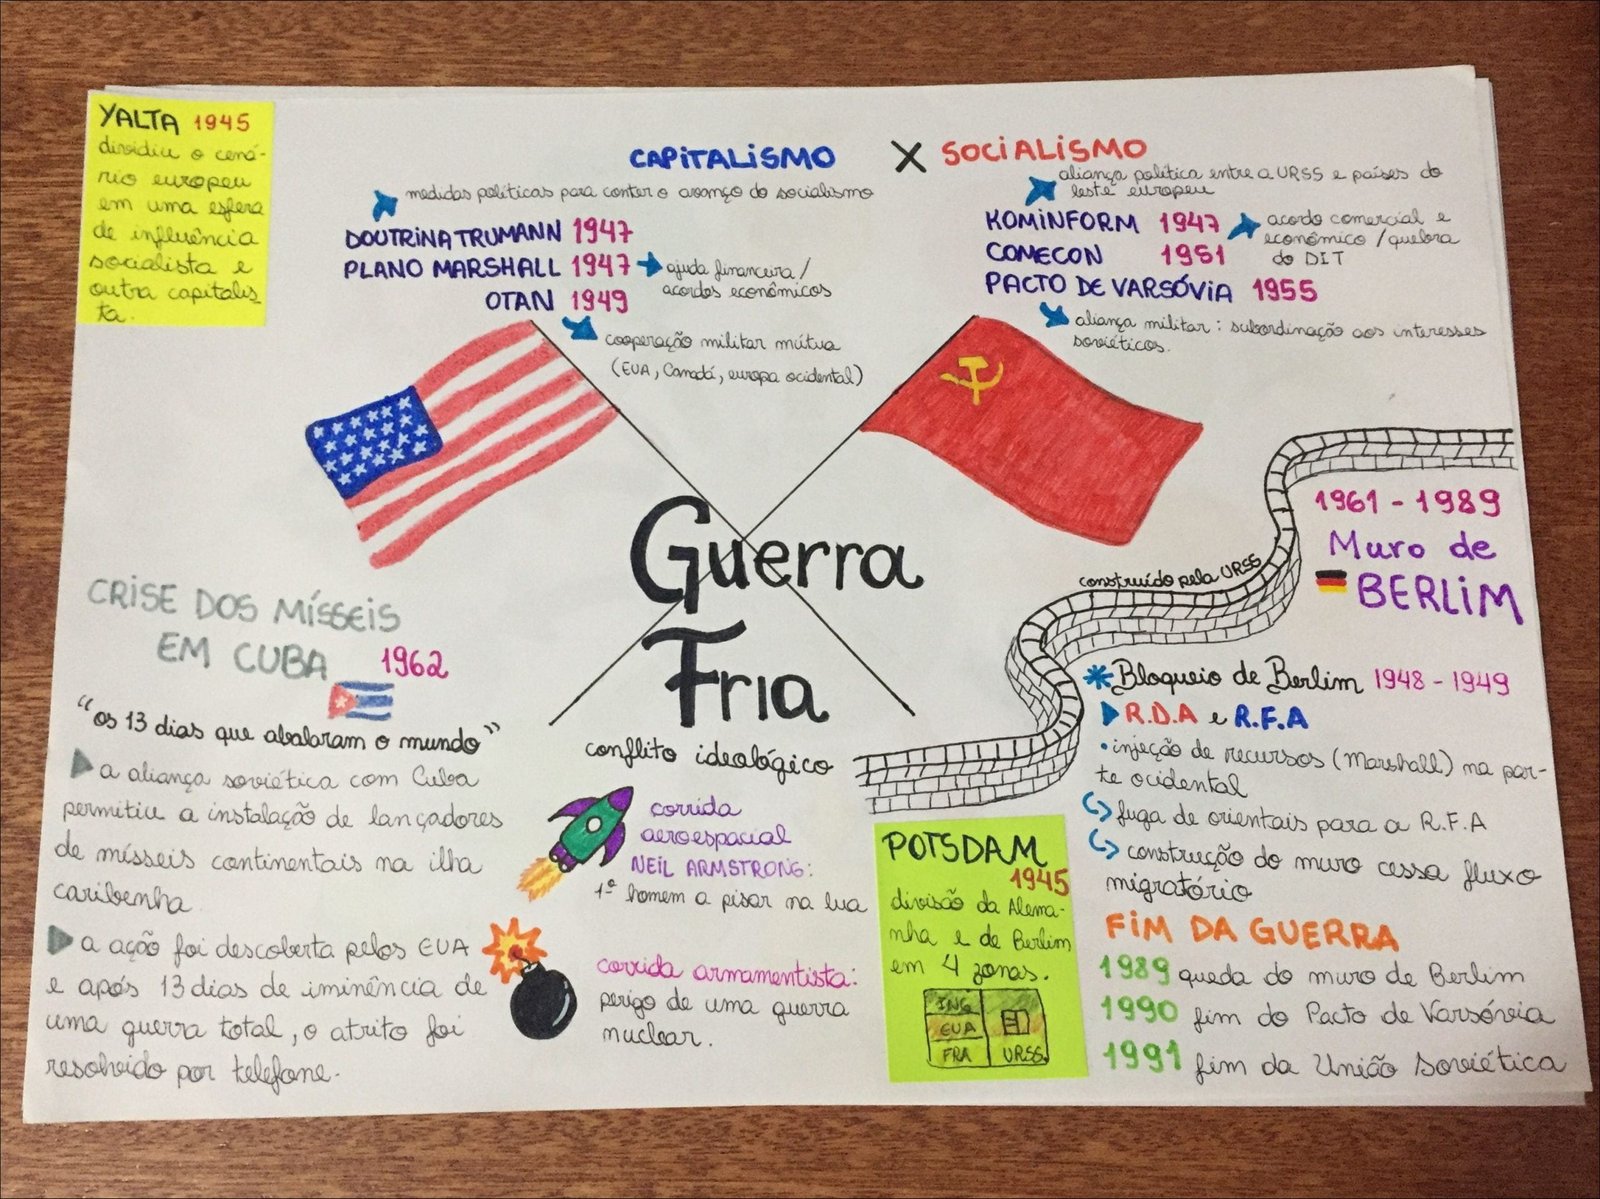 YALTA 1945
dividiu o cená-
rio europeu
em uma esfera
de influência
socialista e
outra capitalis-
ta.
CAPITALISMO X SOCIALISMO
medidas políticas para conter o avanço do socialismo
DOUTRINA TRUMANN 1947
PLANO MARSHALL 1947
ajuda financeira /
acordos econômicos
OTAN 1949
cooperação militar mútua
(EUA, Canadá, europa ocidental)
aliança política entre a URSS e países do
leste europeu
KOMINFORM 1947
COMECON 1951
acordo comercial e
econômico / quebra
do DIT
PACTO DE VARSÓVIA 1955
aliança militar: subordinação aos interesses
soviéticos.
Guerra
Fria
conflito ideológico
construído pela URSS
1961 - 1989
Muro de
BERLIM
CRISE DOS MÍSSEIS
EM CUBA 1962
"os 13 dias que abalaram o mundo"
a aliança soviética com Cuba
permitiu a instalação de lançadores
de mísseis continentais na ilha
caribenha
a ação foi descoberta pelos EUA
e após 13 dias de iminência de
uma guerra total, o atrito foi
resolvido por telefone.
corrida
aeroespacial
NEIL ARMSTRONG:
1º homem a pisar na lua
corrida armamentista:
perigo de uma guerra
nuclear.
POTSDAM
1945
divisão da Alema-
nha e de Berlim
em 4 zonas.
ING
EUA
FRA URSS
* Bloqueio de Berlim 1948 - 1949
R.D.A e R.F.A
• injeção de recursos (Marshall) na par-
te ocidental
fuga de orientais para a R.F.A
construção do muro cessa fluxo
migratório
FIM DA GUERRA
1989 queda do muro de Berlim
1990 fim do Pacto de Varsóvia
1991 fim da União Soviética